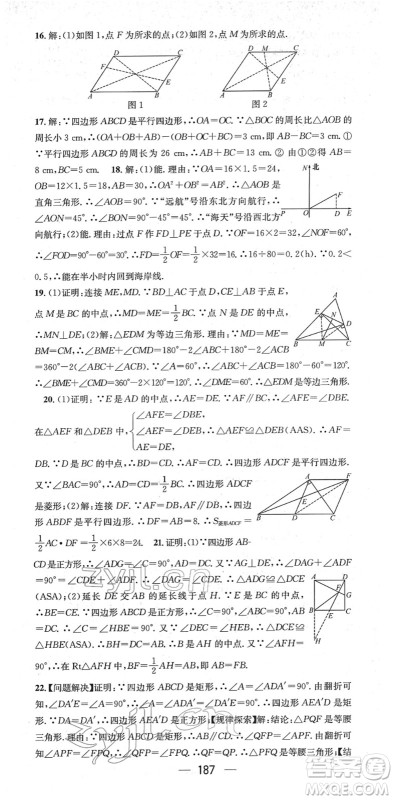 16. 解:(1)如图1,点F为所求的点;(2)如图2,点M为所求的点.
D C D M C
F
A B A B
图1 图2
17. 解:∵四边形ABCD是平行四边形,∴OA=OC.∵△BOC的周长比△AOB的
周长小3 cm,∴(OA+OB+AB)-(OC+OB+BC)=3.即AB-BC=3 cm.①
∵平行四边形ABCD的周长为26 cm,∴AB+BC=13 cm.② 由①②得AB=
8 cm,BC=5 cm. 18. 解:(1)能.理由:∵OA=16×1.5=24,
OB=12×1.5=18,AB=30,∴OA²+OB²=AB².∴△AOB是
直角三角形.∵“远航”号沿东北方向航行,
∴∠AON=45°.∴∠BON=45°.∴“海天”号沿西北方
向航行;(2)能.理由:过点F作FD⊥PE于点D.∵OF=16×2=32,∠NOF=60°,
∴∠FOD=90°-60°=30°.∴FD=1/2 OF=1/2×32=16.∴16÷80=0.2(h).∵0.2<
0.5,∴能在半小时内回到海岸线.
北
N
F
P O D E
19. (1)证明:连接ME,MD.∵BD⊥AC于点D,CE⊥AB于点E,
点M是BC的中点,∴MD=ME=1/2 BC.∵点N是DE的中点,
∴MN⊥DE;(2)解:△EDM为等边三角形.理由:∵MD=ME=BM=
CM=1/2 BC,∴∠BME+∠CMD=180°-2∠ABC+180°-2∠ACB
=360°-2(∠ABC+∠ACB).∵∠A=60°,∴∠ABC+∠ACB=180°-60°=120°.
∴∠BME+∠CMD=120°.∴∠DME=180°-120°=60°.∴△EDM是等边三角形.
20. (1)证明:∵E是AD的中点,∴AE=DE.∵AF∥BC,∴∠AFE=∠DBE.
∠AFE=∠DBE,
在△AEF和△DEB中,∠AEF=∠DEB,∴△AEF≌△DEB(AAS).∴AF=
AE=DE,
DB.∵D是BC的中点,∴BD=CD.∴AF=CD.∴四边形ADCF是平行四边形.
又∵∠BAC=90°,∴AD=CD=1/2 BC.∴四边形ADCF
是菱形;(2)解:连接DF.∵AF∥BD,AF=BD,∴四边形
ABDF是平行四边形.∴DF=AB=8.∴S菱形ADCF=
1/2 AC·DF=1/2×6×8=24. 21. 证明:(1)∵四边形AB-
CD是正方形,∴∠ADG=∠C=90°,AD=DC.又∵AG⊥DE,∴∠DAG+∠ADF=
90°=∠CDE+∠ADF.∴∠DAG=∠CDE.∴△ADG≌△DCE
(ASA);(2)延长DE交AB的延长线于点H.∵E是BC的中点,
∴BE=CE.∵四边形ABCD是正方形,∴∠ABC=∠C=90°,DC=AB.
∴∠C=∠HBE=90°.又∵∠DEC=∠HEB,∴△DCE≌△HBE
(ASA).∴BH=DC=AB.∴B是AH的中点.又∵∠AFH=
90°,∴在Rt△AFH中,BF=1/2 AH=AB.
22.【问题解决】证明:∵四边形ABCD是矩形,∴∠A=∠ADA′=90°.由翻折可
知,∠DA′E=∠A=90°,∴∠A=∠ADA′=∠DA′E=90°.∴四边形AEA′D是矩
形.∵DA=DA′,∴矩形AEA′D是正方形.【规律探索】解:结论:△PQF是等腰三
角形.理由:∵四边形ABCD是矩形,∴AB∥CD.∴∠QFP=∠APF.由翻折可
知∠APF=∠FPQ,∴∠QFP=∠FPQ.∴QF=QP.∴△PFQ是等腰三角形;【结
187
zyjl.cn